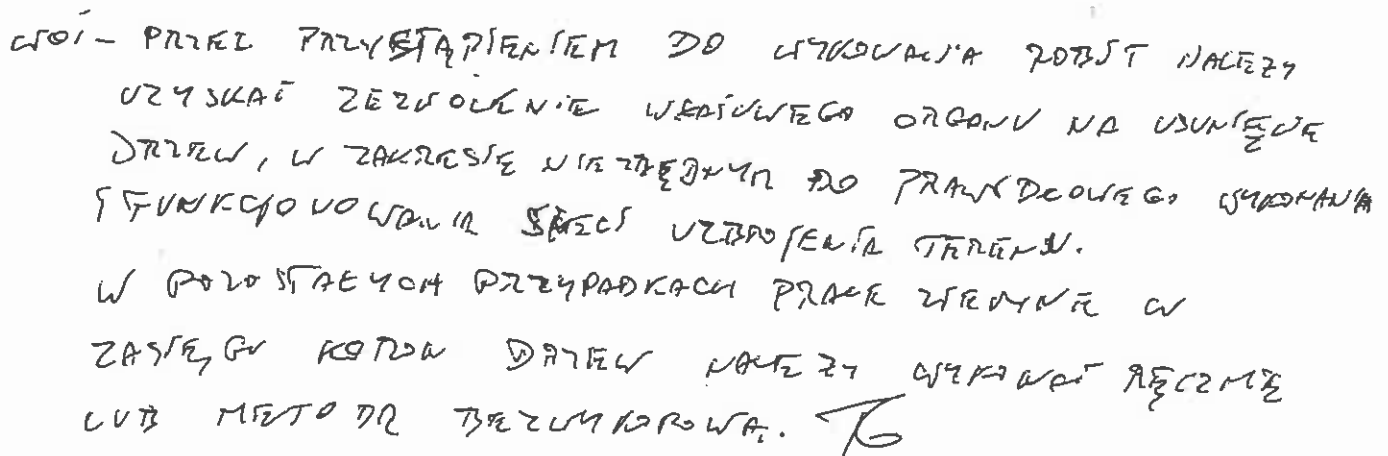 WOŚ - PRZED PRZYSTĄPIENIEM DO WYKONANIA ROBÓT NALEŻY
UZYSKAĆ ZEZWOLENIE WŁAŚCIWEGO ORGANU NA USUNIĘCIE
DRZEW, W ZAKRESIE NIEZBĘDNYM DO PRAWIDŁOWEGO WYKONANIA
I FUNKCJONOWANIA SIECI UZBROJENIA TERENU.
W POZOSTAŁYCH PRZYPADKACH PRACE ZIEMNE W
ZASIĘGU KORON DRZEW NALEŻY WYKONAĆ RĘCZNIE
LUB METODĄ BEZWYKOPOWĄ.